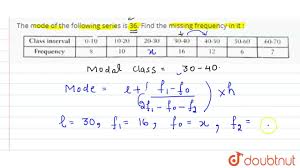 doubtnut
The mode of the following series is 36. Find the missing frequency in it :
Class interval 0-10 10-20 20-30 30-40 40-50 50-60 60-70
Frequency 8 10 x 16 12 6 7
Modal Class = 30-40.
Mode = l + (f1-f0 / 2f1-f0-f2) x h
l = 30, f1 = 16, f0 = x, f2 =
doubtnut